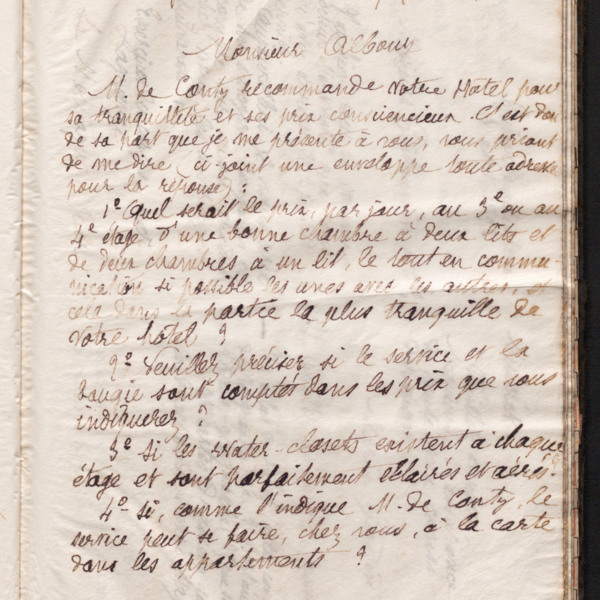 Monsieur Albouy
M. de Conty recommande votre Hotel pour
sa tranquillité et ses prix consciencieux. C'est donc
de sa part que je me présente à vous, vous priant
de me dire (ci-joint une enveloppe toute adressée
pour la réponse) :
1º Quel serait le prix, par jour, au 3e ou au
4e étage, d'une bonne chambre à deux lits et
de deux chambres à un lit, le tout en commu-
nication si possible les unes avec les autres, et
cela dans la partie la plus tranquille de
votre hôtel ?
2º Veuillez préciser si le service et la
bougie sont comptés dans les prix que vous
indiquerez ?
3º Si les Water-closets existent à chaque
étage et sont parfaitement éclairés et aérés.
4º Si, comme l'indique M. de Conty, le
service peut se faire, chez vous, à la carte
dans les appartements ?